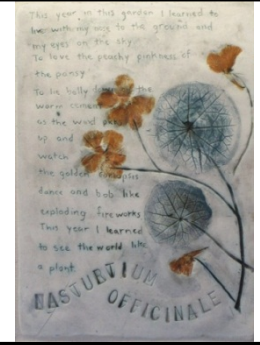 This year in this garden I learned to
my ear to the ground and
my eyes on the sky.
To love the peachy pinkness of
the pansy.
To be the
warm
as the wind
up and
watch
the golden
dance and bob like
exploding fireworks
This year I learned
to see the world like
a plant
NASTURTIUM
OFFICINALE